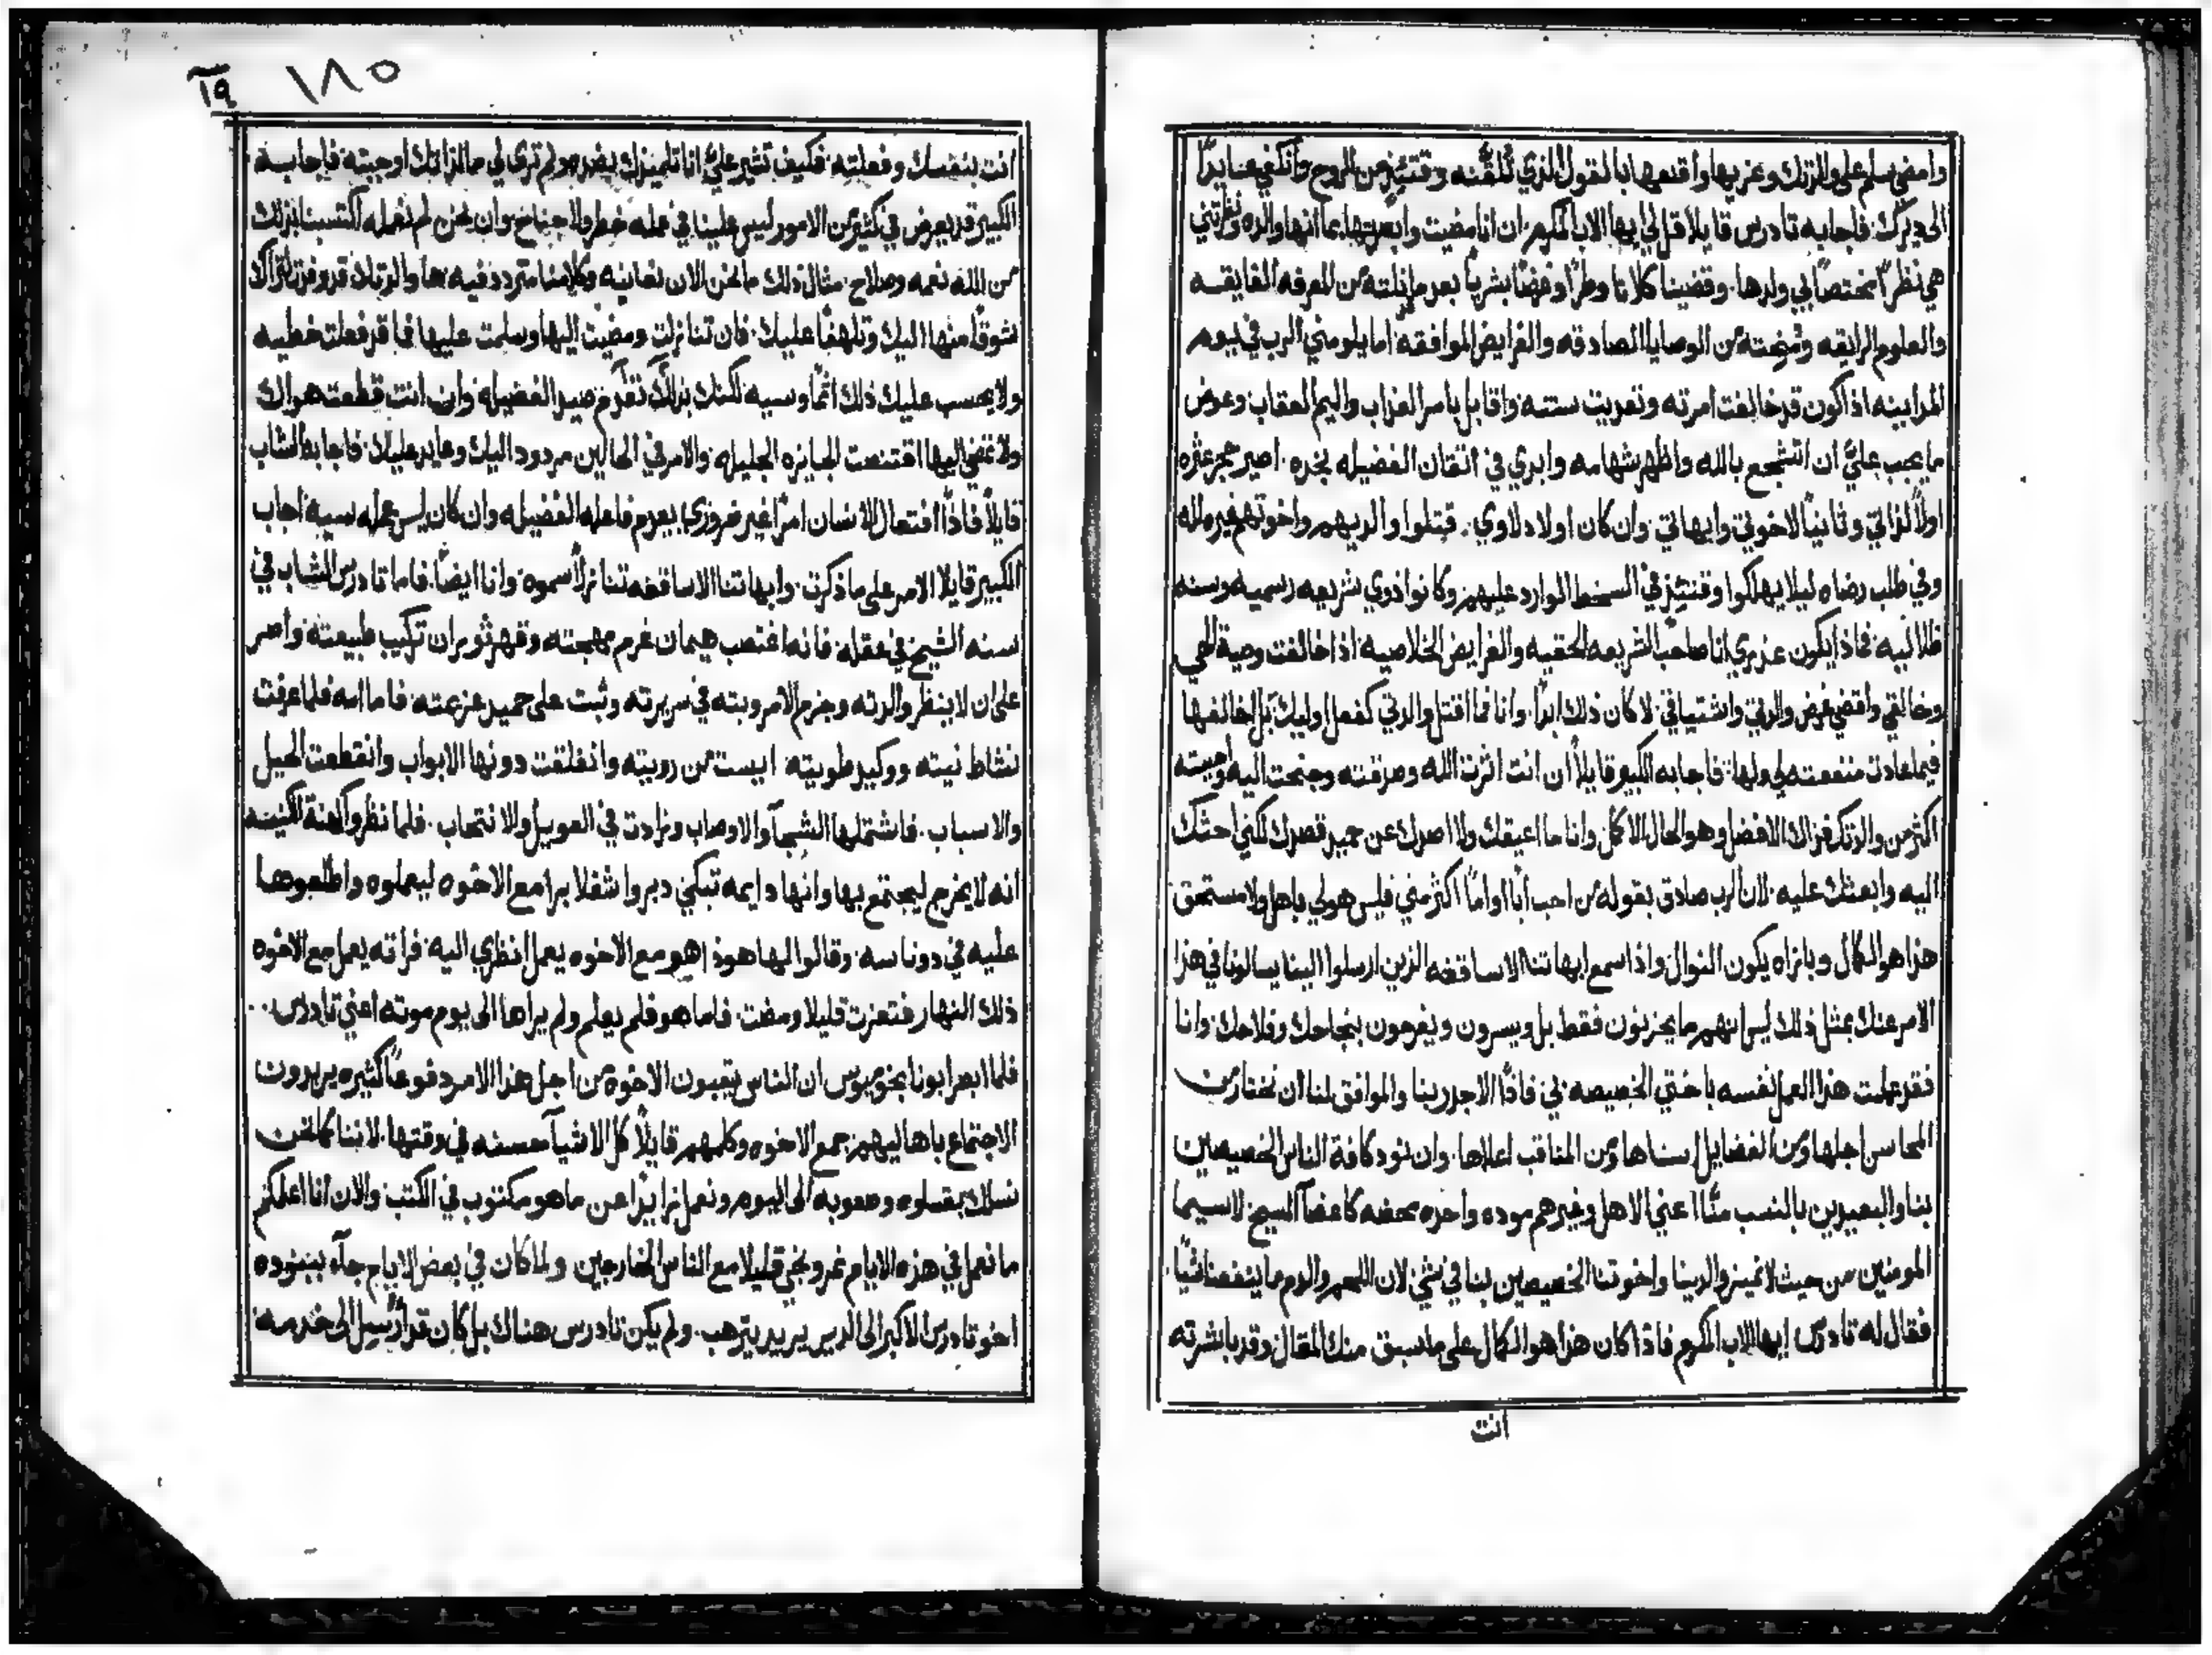 وامضي سلم على والدتك وعزيها واقنعها بالقول الذي تلقنه وقتئذ من الروح وانكفي عنا يدًا
الى ديرك. فاجابه تادرس قايلا قل لي ايها الاب المكرم. ان انا مضيت وابصرتها بما انها والده ونظرتني
هي نظرًا مختصًا بي ولدها. وقضينا كلانا وطرًا وغرضًا بشريًا بعد ما نلته من المعرفه الفايقه
والعلوم الرايقه ومنحته من الوصايا الصادقه والفرايض الموافقه اما يلومني الرب في يوم
المداينه اذ اكون قد خالفت امرته وتعديت سنته واقابل بأمر العذاب واليم العقاب وعوض
ما يجب عليَّ ان اتشجع بالله واظهر شهامه وابدي في اتقان الفضيله نجده. اصير حجر عثره
اولًا لذاتي وثانيًا لاخوتي وابهاتي وان كان اولاد لاوي. قتلوا والديهم واخوتهم غيره لله
وفي طلب رضاه ليلا يهلكوا وقتئذ في السخط الوارد عليهم وكانوا ذوي شريعه رسميه وسنه
ظلاليه فماذا يكون عذري انا صاحب الشريعه الحقيه والفرايض الخلاصيه اذا خالفت وصية الهي
وخالقي واقضي غرض والدتي واشتياقي. لا كان ذلك ابدًا. وانا فما اقتل والدتي كفعل اوليك بل اخالفها
فيما عادت منفعته لي ولها. فاجابه الكبير قايلًا ان انت اثرت الله وعرفته وجنحت اليه واحببته
اكثر من والدتك فذاك الافضل وهو الحال الاكمل وانا ما اعيقك ولا اصدك عن حميد قصدك لكني احثك
اليه وابعثك عليه. لان الرب صادق بقوله من احب ابًا او امًا اكثر مني فليس هو لي باهل ولا مستحق
هذا هو الكمال وبازاه يكون النوال واذا سمع ابهاتنا الاساقفه الذين ارسلوا الينا يسالونا في هذا
الامر عنك بمثل ذلك ليس انهم ما يحزنون فقط بل ويسرون ويفرحون بنجاحك وفلاحك. وانا
فقد عملت هذا العمل نفسه باختي الخصيصه بي فاذًا الاجدر بنا والموافق لنا ان نختار من
المحاسن اجلها ومن الفضايل اسناها ومن المناقب اعلاها. وان نود كافة الناس الخصيصين
بنا والبعيدين بالنسب منًّا اعني الاهل وغيرهم موده واحده محضه كاعضآ المسيح. لاسيما
المومنين من حيث لا نميز والدينا واخوتنا الخصيصين بنا في شي لان اللحم والدم ما ينفعنا شيًا
فقال له تادرس ايها الاب المكرم فاذا كان هذا هو الكمال على ما سبق منك المقال وقد باشرته
انت
١٨٥
١٩
انت بنفسك وفعلته. فكيف تشير عليَّ انا تلميذك بضده ولم ترى لي ما لذاتك اوجبته. فاجابه
الكبير قد يعرض في كثير من الامور ليس علينا في عمله خطر ولا جناح وان نحن لم نعمله اكتسبنا بذلك
من الله نعمه وصلاح. مثال ذلك ما نحن الان نعانيه وكلامنا متردد فيه. ها والدتك قد وفدت لتراك
شوقًا منها اليك وتلهفًا عليك. فان تنازلت ومضيت اليها وسلمت عليها فما قد فعلت خطيه
ولا يحسب عليك ذلك اثمًا وسيه لكنك بذلك تعدم صيد الفضيله وان انت قطعت هواك
ولا تمضي اليها اقتنصت الجايزه الجليله. والامر في الحالين مردود اليك وعايد عليك. فاجابه الشاب
قايلًا فاذًا افتعال الانسان امرًا غير ضروري يعدم فاعله الفضيله وان كان ليس عمله سيه. اجاب
الكبير قايلا الامر على ما ذكرت. وابهاتنا الاساقفه تنازلًا سموه. وانا ايضًا. فاما تادرس الشاب في
سنه الشيخ في عقله. فانه اغتصب هيمان غرم مهجته وقهر ثوران تركيب طبيعته. واصر
على ان لا ينظر والدته وجزم الامر وبته في سريرته وثبت على حميد عزيمته. فاما امه فلما عرفت
نشاط نيته ووكيد طويته. ايست من رويته وانغلقت دونها الابواب وانقطعت الحيل
والاسباب. فاشتملها الشجآ والاوصاب وزادت في العويل والانتحاب. فلما نظروا كهنة الكنيسه
انه لا يخرج ليجتمع بها وانها دايمه تبكي دبروا شغلا برا مع الاخوه ليعملوه واطلعوها
عليه في دوناسه. وقالوا لها هوذا هو مع الاخوه يعمل انظري اليه. فراته يعمل مع الاخوه
ذلك النهار فتعزت قليلا ومضت. فاما هو فلم يعلم ولم يراها الى يوم موته اعني تادرس.
فلما ابصر ابونا بخوميوس ان الناس يتعبون الاخوة من اجل هذا الامر دفوعًا كثيره يريدون
الاجتماع باهاليهم. جمع الاخوه وكلمهم قايلًا كل الاشيآ حسنه في وقتها. لاننا كما نحن
نسلك بقساوه وصعوبه الى اليوم ونعمل زايدًا عن ما هو مكتوب في الكتب. والان انا اعلمكم
ما نعمل في هذه الايام نمر ونجي قليلا مع الناس الخارجين ولما كان في بعض الايام جآء ببنوده
اخو تادرس الاكبر الى الدير يريد يترهب. ولم يكن تادرس هناك بل كان قد ارسل الى خدمه.